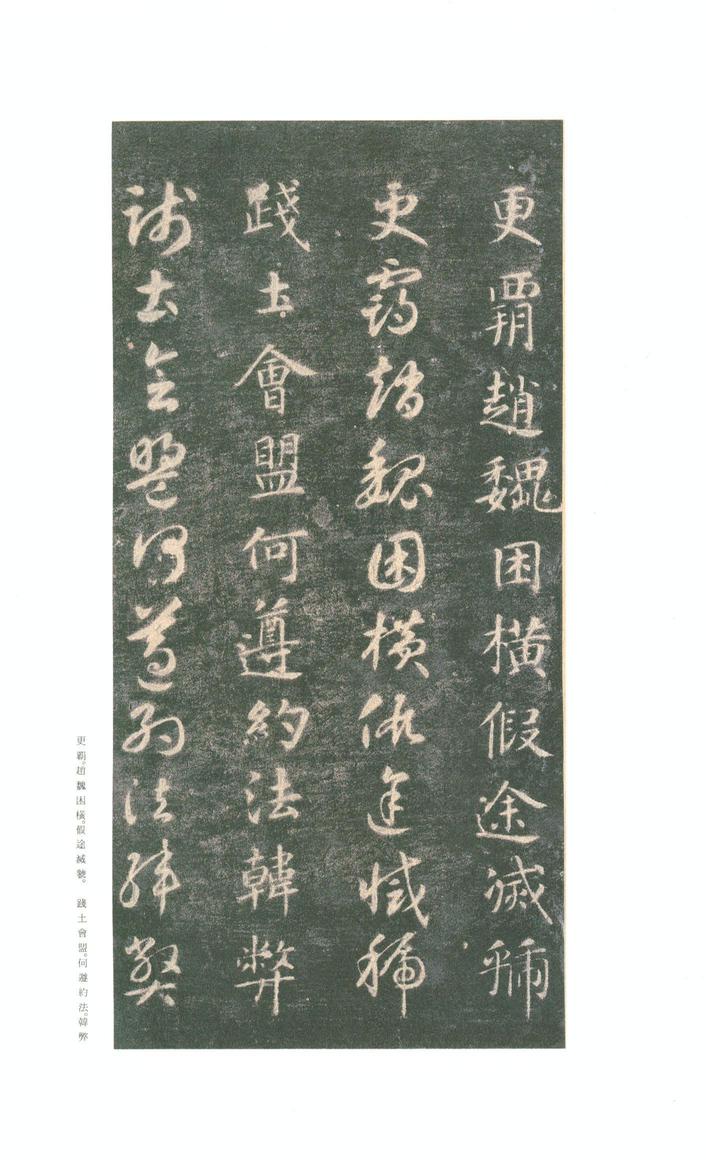 更覇趙魏困橫假途滅虢
更覇趙魏困橫假途滅虢
踐土會盟何遵約法韓弊
踐土會盟何遵約法韓弊
更覇。趙魏困橫。假途滅虢。　踐土會盟。何遵約法。韓弊